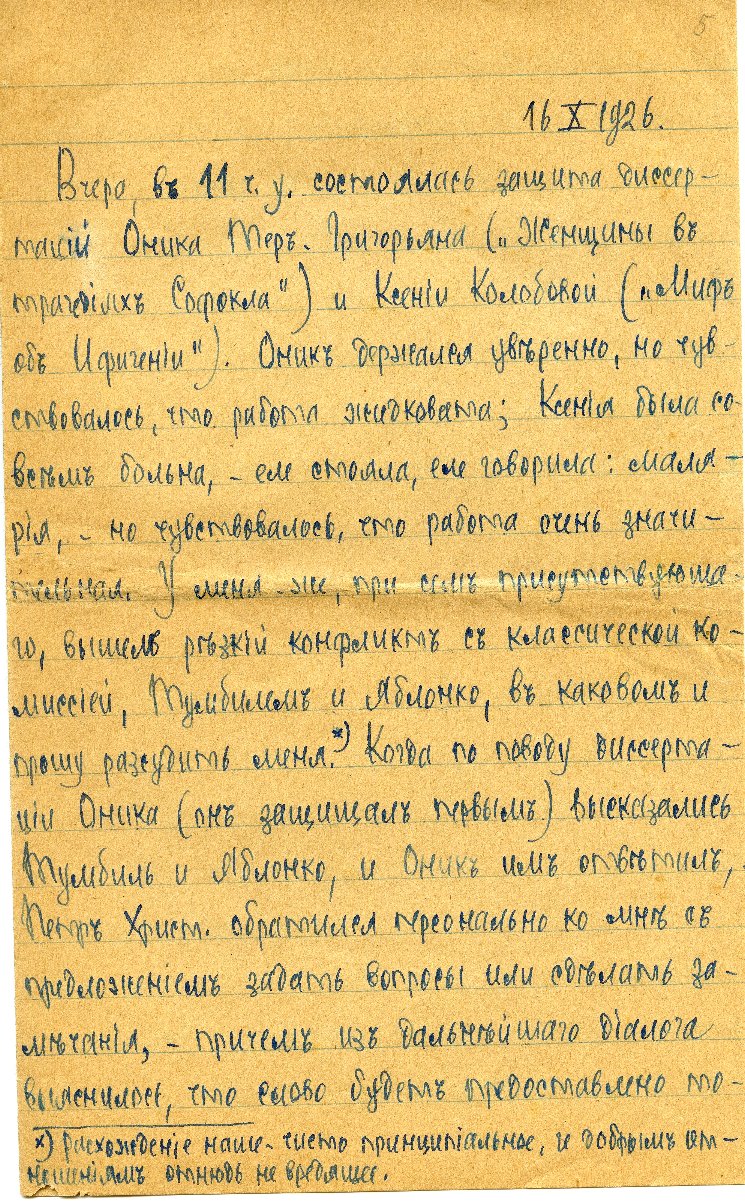 5
16 X 1926.
Вчера, въ 11 ч. у. состоялась защита диссер-
тацій Оника Теръ-Григорьяна („Женщины въ
трагедіяхъ Софокла") и Ксеніи Колобовой („Мифъ
объ Ифигеніи"). Оникъ держался увѣренно, но чув-
ствовалось, что работа жидковата; Ксенія была со-
всѣмъ больна, – еле стояла, еле говорила: маля-
рія, – но чувствовалось, что работа очень значи-
тельная. У меня-же, при семъ присутствующа-
го, вышелъ рѣзкій конфликтъ съ классической ко-
миссіей, Тумбилемъ и Яблонко, въ каковомъ и
прошу разсудить меня.*) Когда по поводу диссерта-
ціи Оника (онъ защищалъ первымъ) высказались
Тумбиль и Яблонко, и Оникъ имъ отвѣтилъ,
Петръ Христ. обратился персонально ко мнѣ съ
предложеніемъ задать вопросы или сдѣлать за-
мѣчанія, – причемъ изъ дальнѣйшаго діалога
выяснилось, что слово будетъ предоставлено то-
*) Расхожденіе наше – чисто принципіальное, и добрымъ от-
ношеніямъ отнюдь не вредящее.